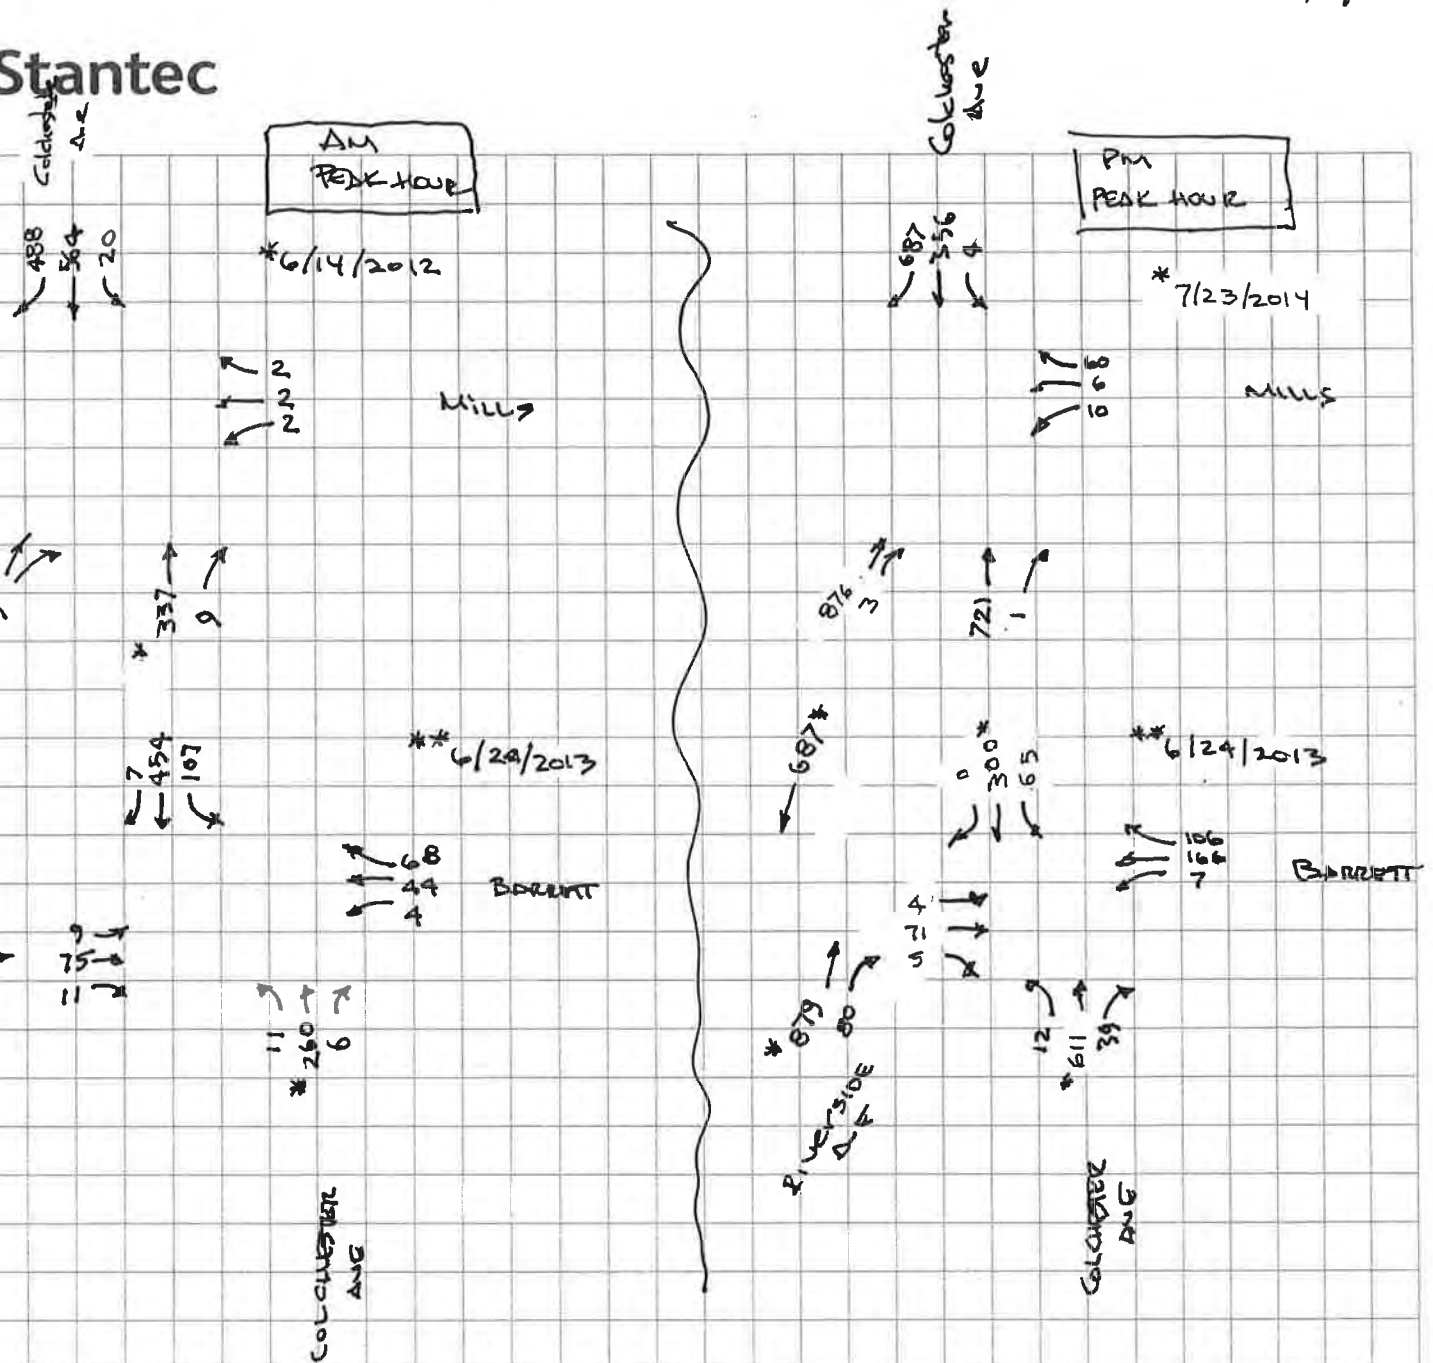 Stantec
Colchester
Ave
AM
PEAK HOUR
*6/14/2012
488
564
20
2
2
2
MILLS
337
9
*
**6/24/2013
7
454
107
68
44
4
BARRETT
9
75
11
11
260
6
*
COLCHESTER
AVE
Colchester
Ave
PM
PEAK HOUR
*7/23/2014
687
356
4
60
6
10
MILLS
876
3
721
1
687*
0
300*
65
**6/24/2013
106
166
7
BARRETT
4
71
5
*879
80
12
*611
39
RIVERSIDE
AVE
COLCHESTER
AVE